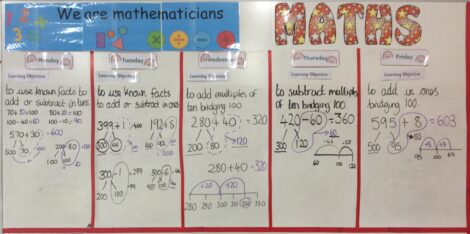 1 2
3
We are mathematicians
MATHS
Monday
Learning Objective
to use known facts to
add or subtract in tens
70+30=100 80+20=100
100-40=60 100-10=90
570+30=600
500 70
200-80
100 100
Tuesday
Learning Objective
to use known facts
to add or subtract in ones
399+1=400 192+8
300 99 100 92
300-1=299
200 100
500-6
400 100
Wednesday
Learning Objective
to add multiples
of ten bridging
100.
280+40=320
200 80
280+40=320
+20 +20
280 290 300 310 320 330
Thursday
Learning Objective
to subtract multiples
of ten bridging 100.
420-60=360
300 120
60 100 120
Friday
Learning Objective
to add in ones
bridging 100.
595+8=603
500 95
+5 +3
95 100 103